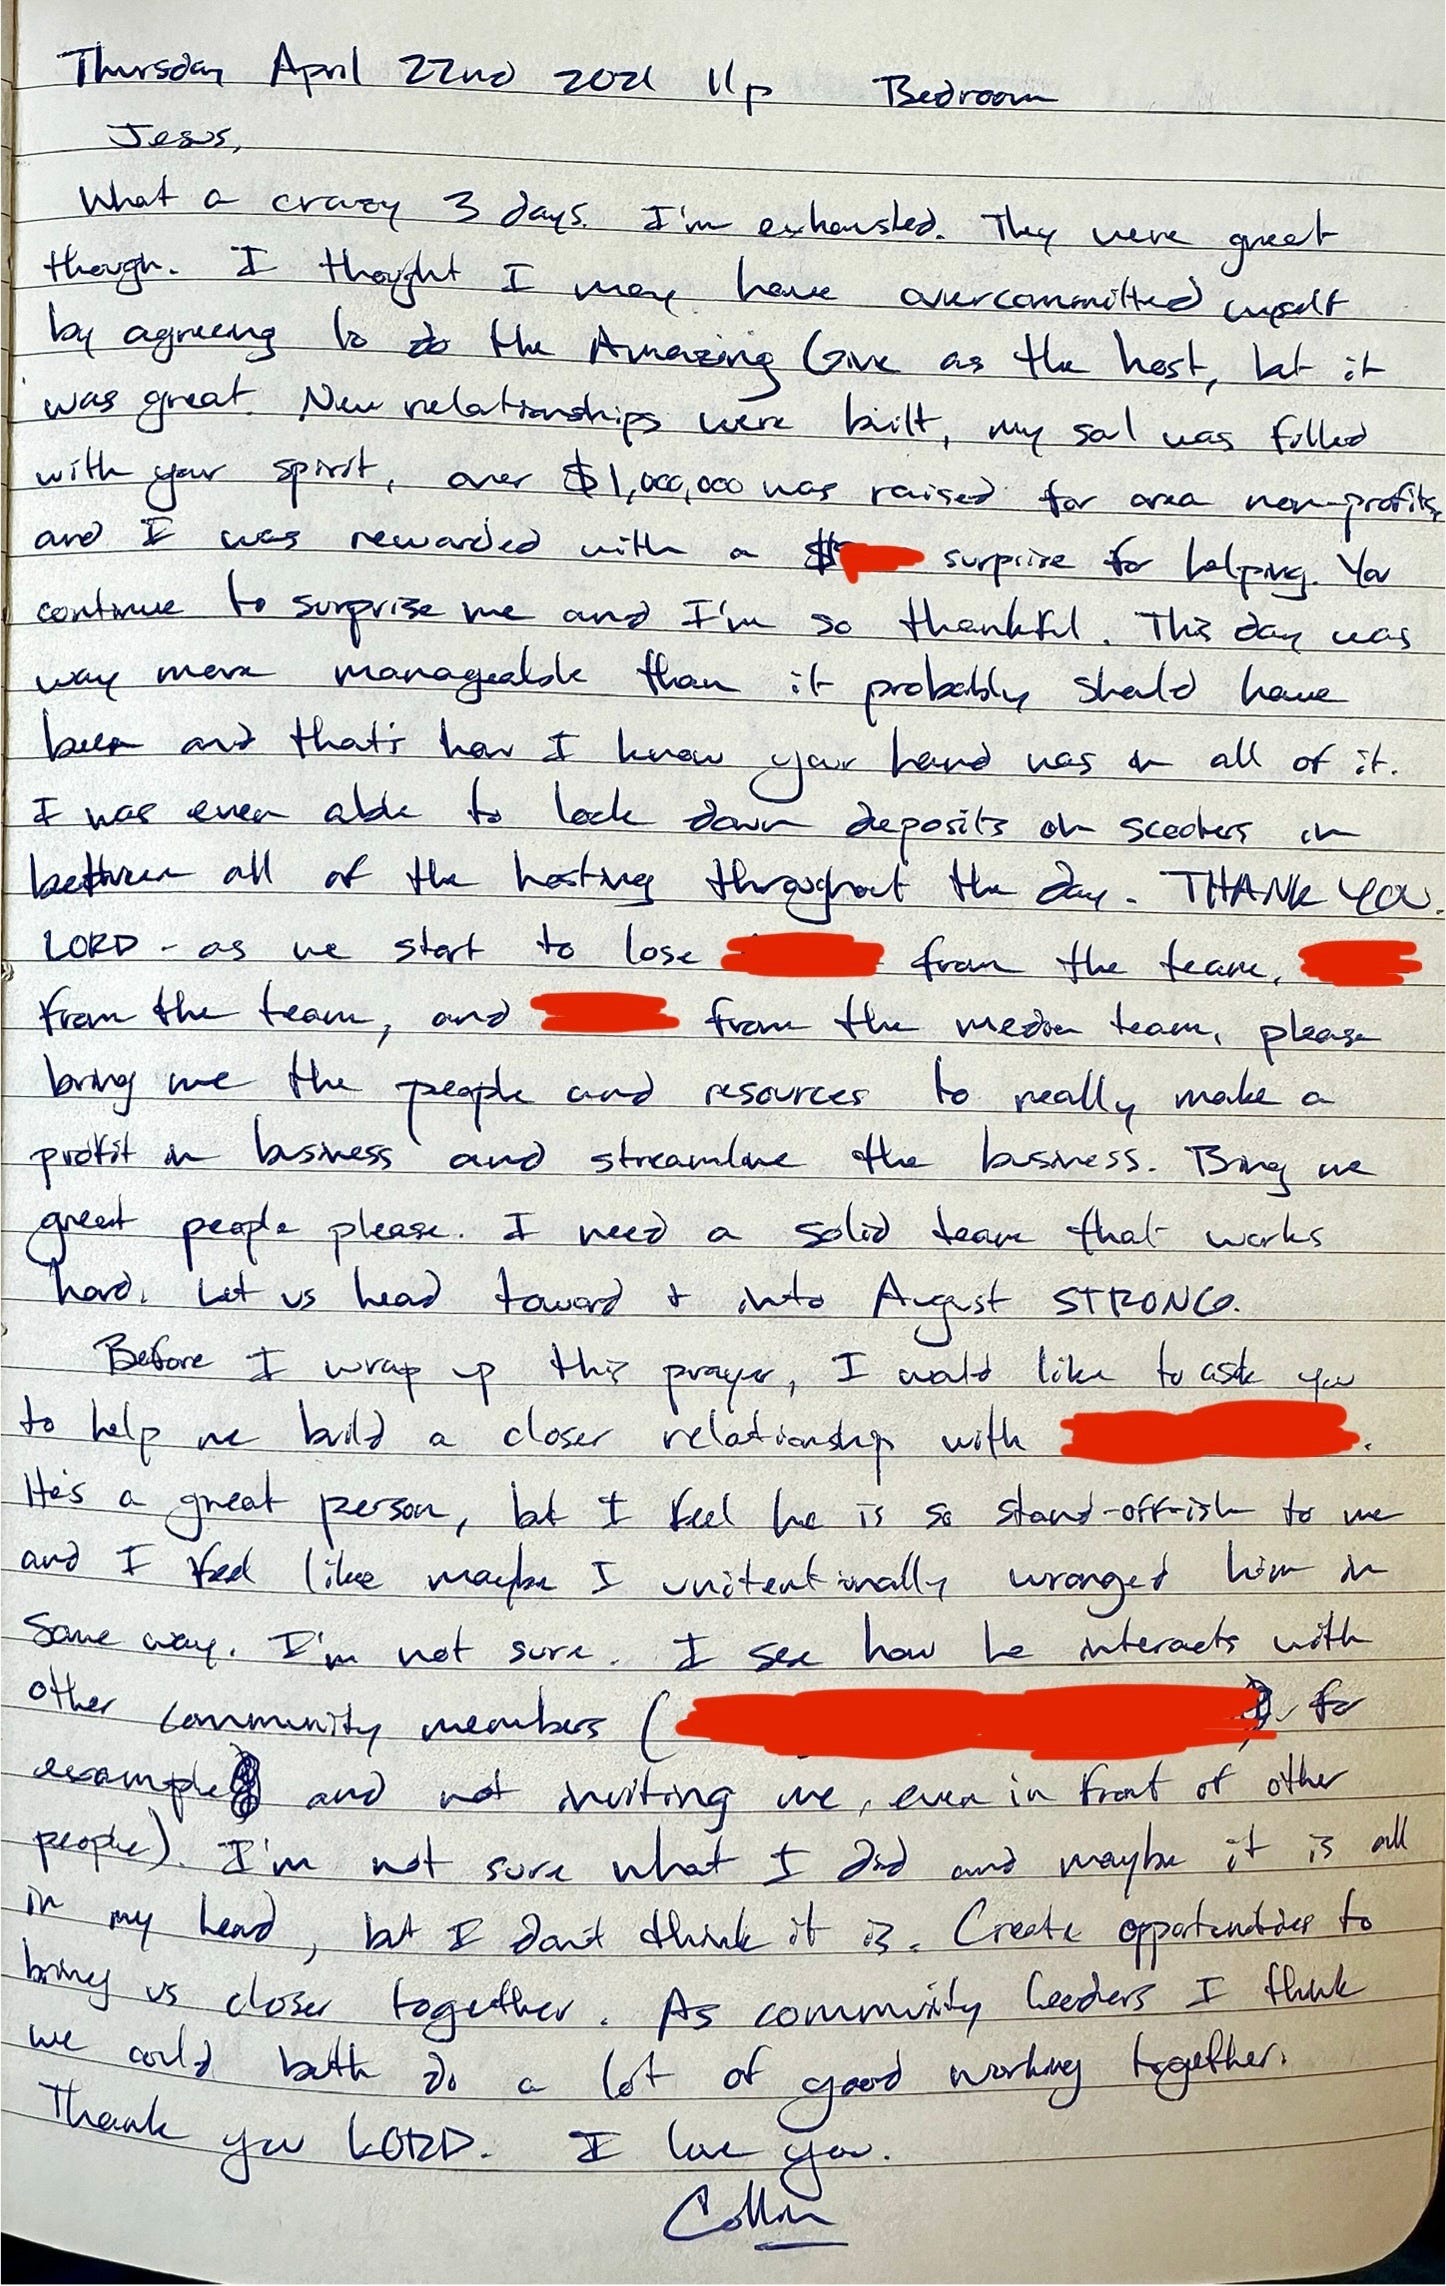 Thursday April 22nd 2021 11p Bedroom
Jesus,
What a crazy 3 days. I'm exhausted. They were great
though. I thought I may have overcommitted myself
by agreeing to do the Amazing Give as the host, but it
was great. New relationships were built, my soul was filled
with your spirit, over $1,000,000 was raised for area non-profits,
and I was rewarded with a $ surprise for helping. You
continue to surprise me and I'm so thankful. This day was
way more manageable than it probably should have
been and that's how I know your hand was in all of it.
I was even able to lock down deposits on scooters in
between all of the hosting throughout the day. THANK YOU.
LORD - as we start to lose from the team,
from the team, and from the media team, please
bring me the people and resources to really make a
profit in business and streamline the business. Bring me
great people please. I need a solid team that works
hard. Let us head toward + into August STRONG.
Before I wrap up this prayer, I would like to ask you
to help me build a closer relationship with .
He's a great person, but I feel he is so stand-off-ish to me
and I feel like maybe I unitentionally wronged him in
some way. I'm not sure. I see how he interacts with
other community members ( for
example and not inviting me, even in front of other
people). I'm not sure what I did and maybe it is all
in my head, but I don't think it is. Create opportunities to
bring us closer together. As community leaders I think
we could both do a lot of good working together.
Thank you LORD. I love you.
Collin